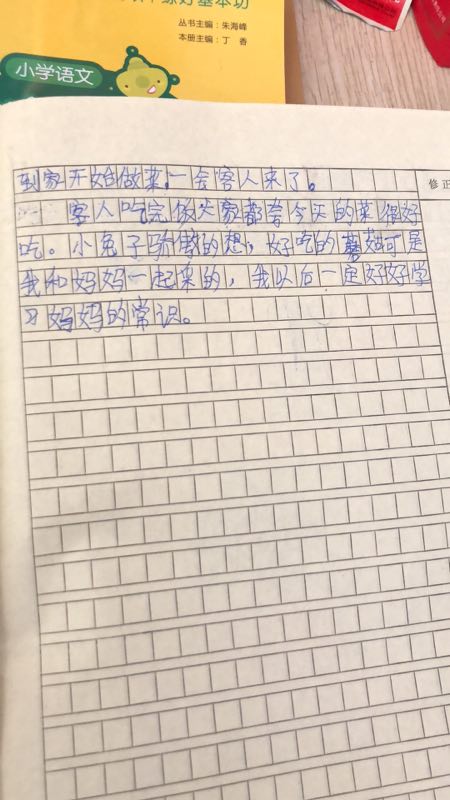 练好基本功
丛书主编：朱海峰
本册主编：丁 香
小学语文
修正
到家开始做菜，一会客人来了。
客人吃完饭大家都夸今天的菜很好
吃。小兔子骄傲的想，好吃的蘑菇可是
我和妈妈一起采的，我以后一定好好学
习妈妈的常识。